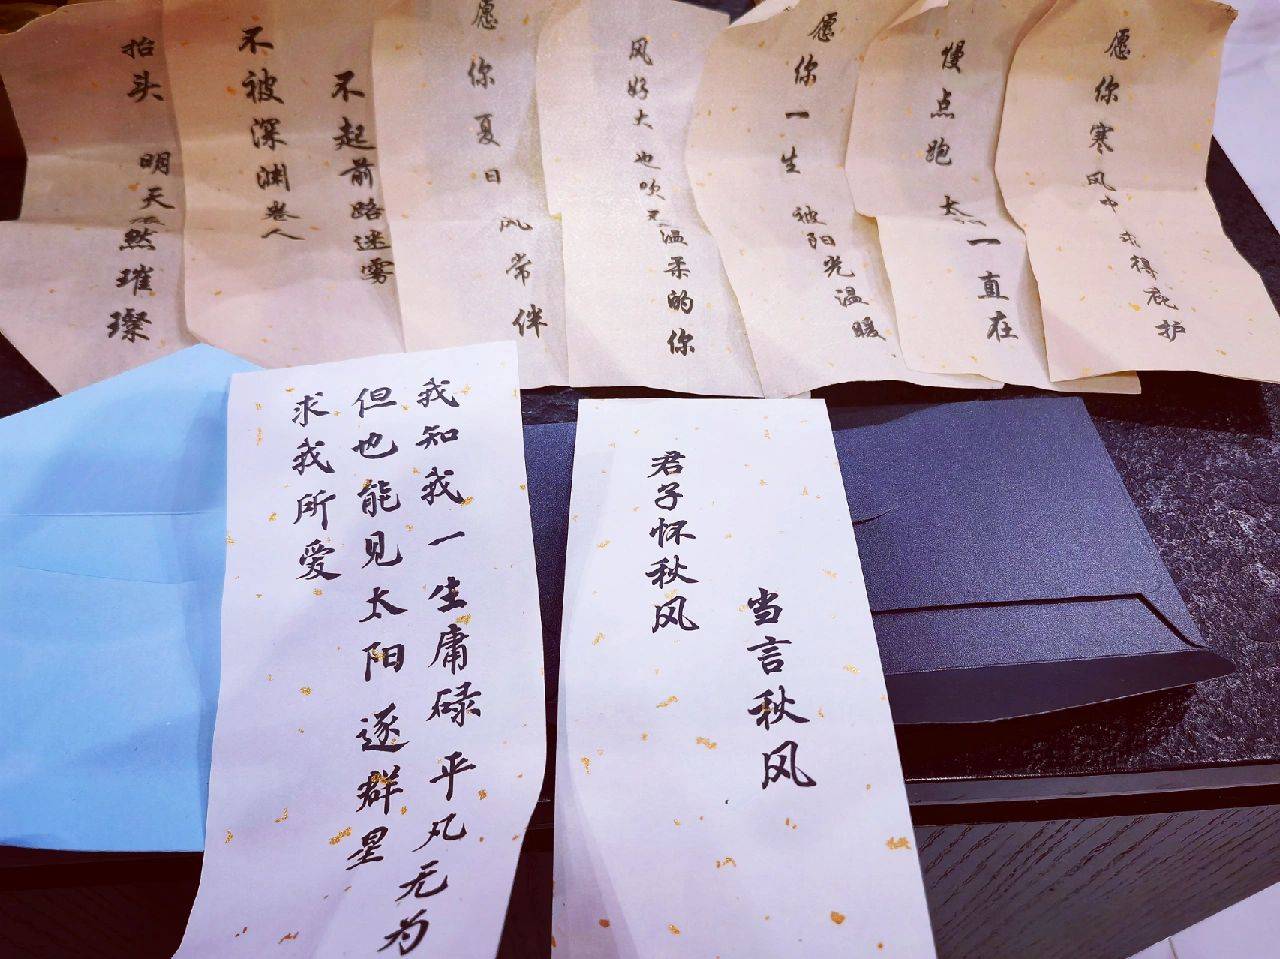 愿你寒风中求得庇护
慢点跑 太
一直在
愿你一生 被阳光温暖
风好大 也吹
温柔的你
愿你夏日 风常伴
不起前路迷雾
不被深渊卷入
抬头 明天
然璀璨
我知我一生庸碌平凡无为
但也能见太阳逐群星
求我所爱
当言秋风
君子怀秋风